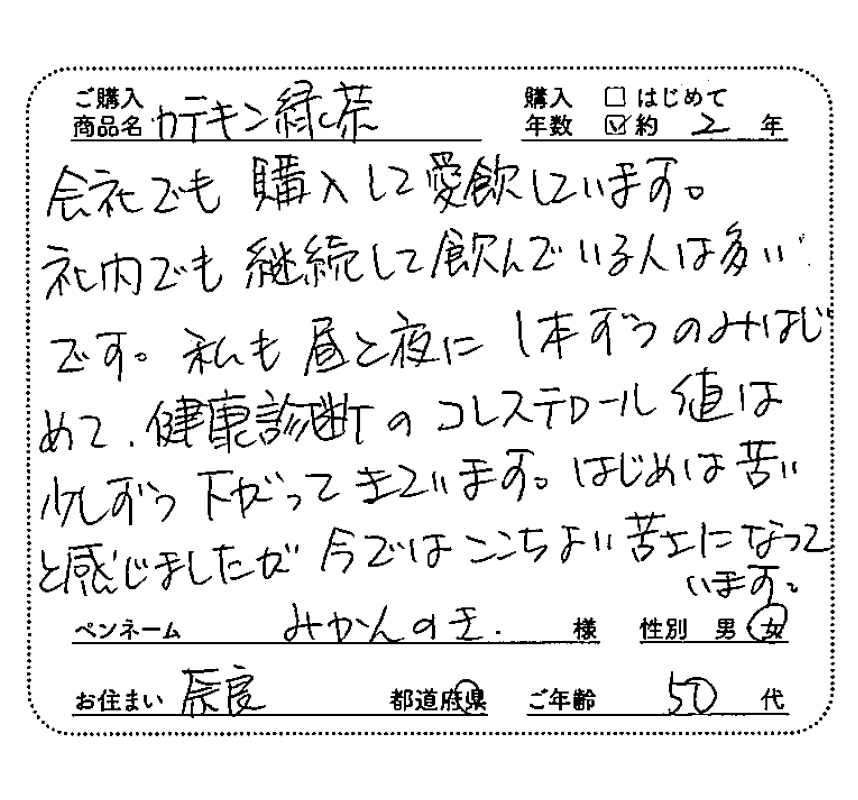 ご購入商品名 カテキン緑茶 購入年数 □ はじめて ☑ 約 2 年
会社でも購入して愛飲しています。
社内でも継続して飲んでいる人は多い
です。私も昼と夜に1本ずつのみはじ
めて、健康診断のコレステロール値は
少しずつ下がってきています。はじめは苦い
と感じましたが今ではここちよい苦さになって
います。
ペンネーム みかんのき. 様 性別 男 女
お住まい 奈良 都道府県 ご年齢 50 代